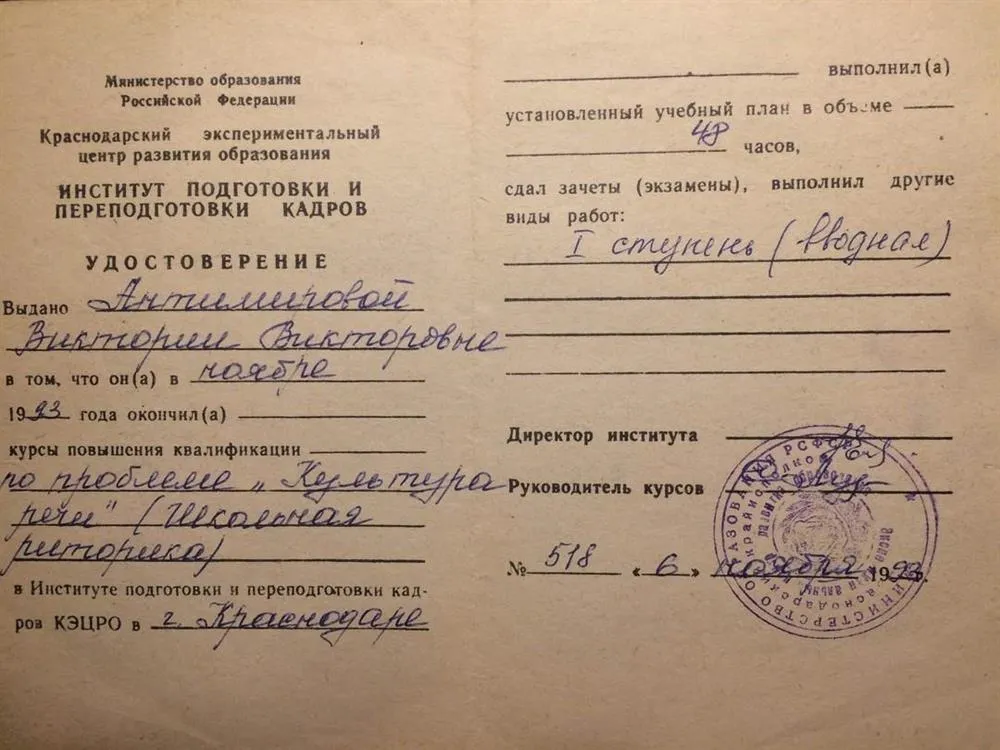 Министерство образования
Российской Федерации
Краснодарский экспериментальный
центр развития образования
ИНСТИТУТ ПОДГОТОВКИ И
ПЕРЕПОДГОТОВКИ КАДРОВ
УДОСТОВЕРЕНИЕ
Выдано Антимировой
Виктории Викторовне
в том, что он(а) в ноябре
1993 года окончил(а)
курсы повышения квалификации
по проблеме „Культура
речи" (Школьная
риторика)
в Институте подготовки и переподготовки кад-
ров КЭЦРО в г. Краснодаре
выполнил(а)
установленный учебный план в объеме
48 часов,
сдал зачеты (экзамены), выполнил другие
виды работ:
I ступень (вводная)
Директор института
Руководитель курсов
№ 518 «6» ноября 1993г.
МИНИСТЕРСТВО ОБРАЗОВАНИЯ РСФСР